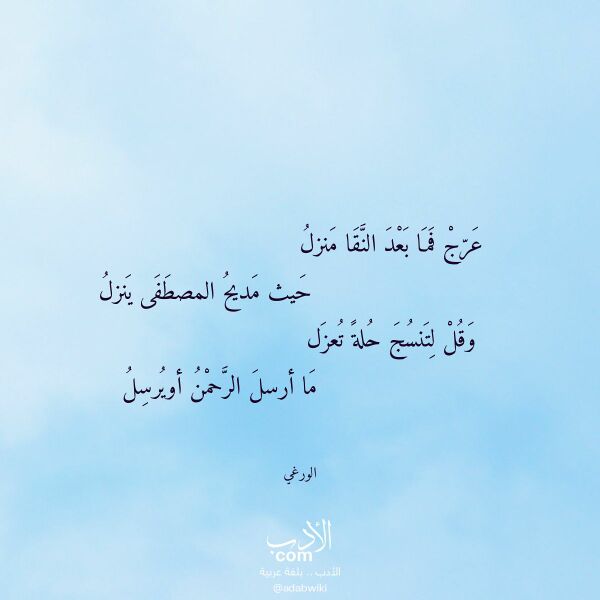 عَرّجْ فَمَا بَعْدَ النَّقَا مَنزلُ
حَيث مَديحُ المصطَفَى يَنزلُ
وَقُلْ لِتَنسُجَ حُلةً تُعزَل
مَا أرسلَ الرَّحمْنُ أويُرسِلُ
الورغي
الأدب
com
الأدب .. بلغة عربية
@adabwiki